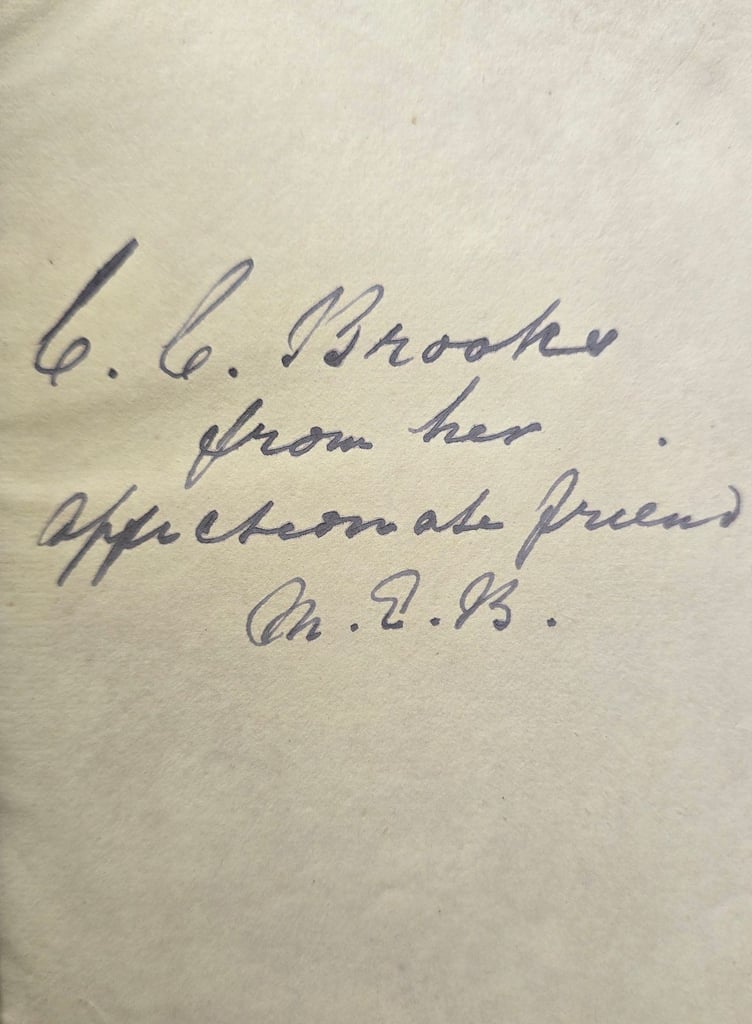 C. C. Brooks
from her
affectionate friend
M. E. B.